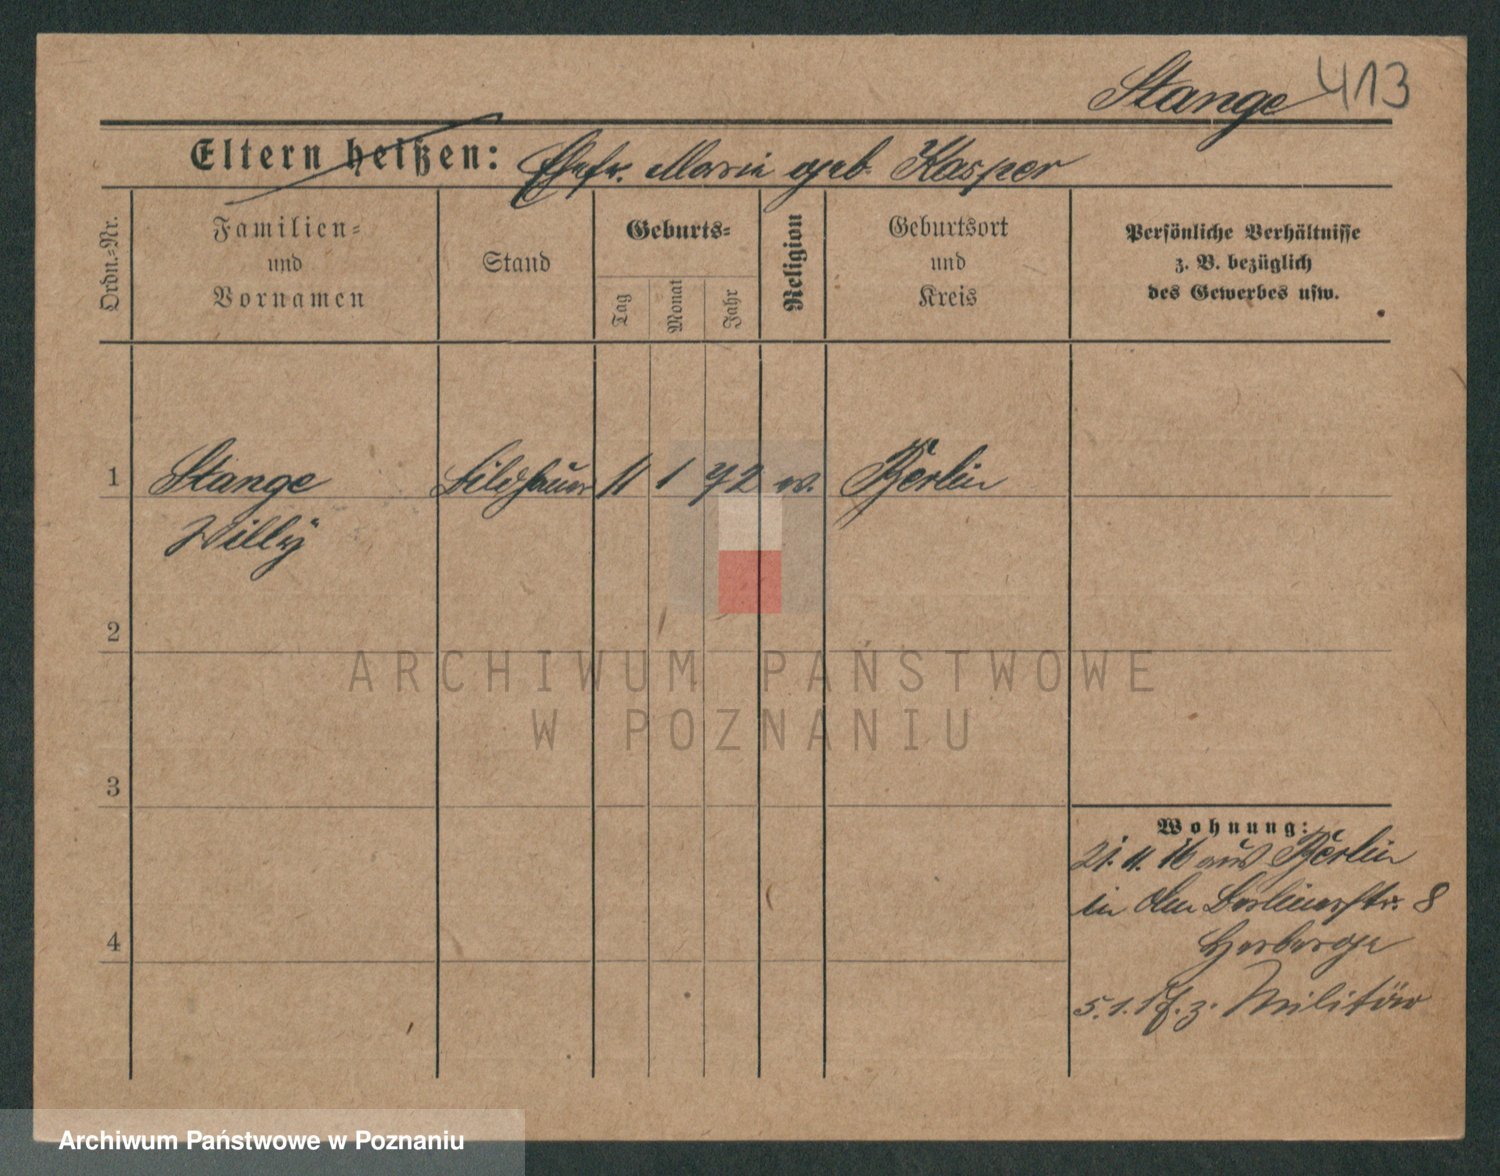 Stange 413
Eltern heißen: Ehefr. Marie geb. Kasper
Ordn.-Nr.
Familien-
und
Vornamen
Stand
Geburts-
Tag
Monat
Jahr
Religion
Geburtsort
und
Kreis
Persönliche Verhältnisse
z. B. bezüglich
des Gewerbes usw.
1 Stange Bildhauer 11 1 72 ev. Berlin
Willy
2
3
4
Wohnung:
21. 11. 16 aus Berlin
in Berlinerstr. 8
Herberge
5. 1. z. Militär
ARCHIWUM PAŃSTWOWE
W POZNANIU
Archiwum Państwowe w Poznaniu